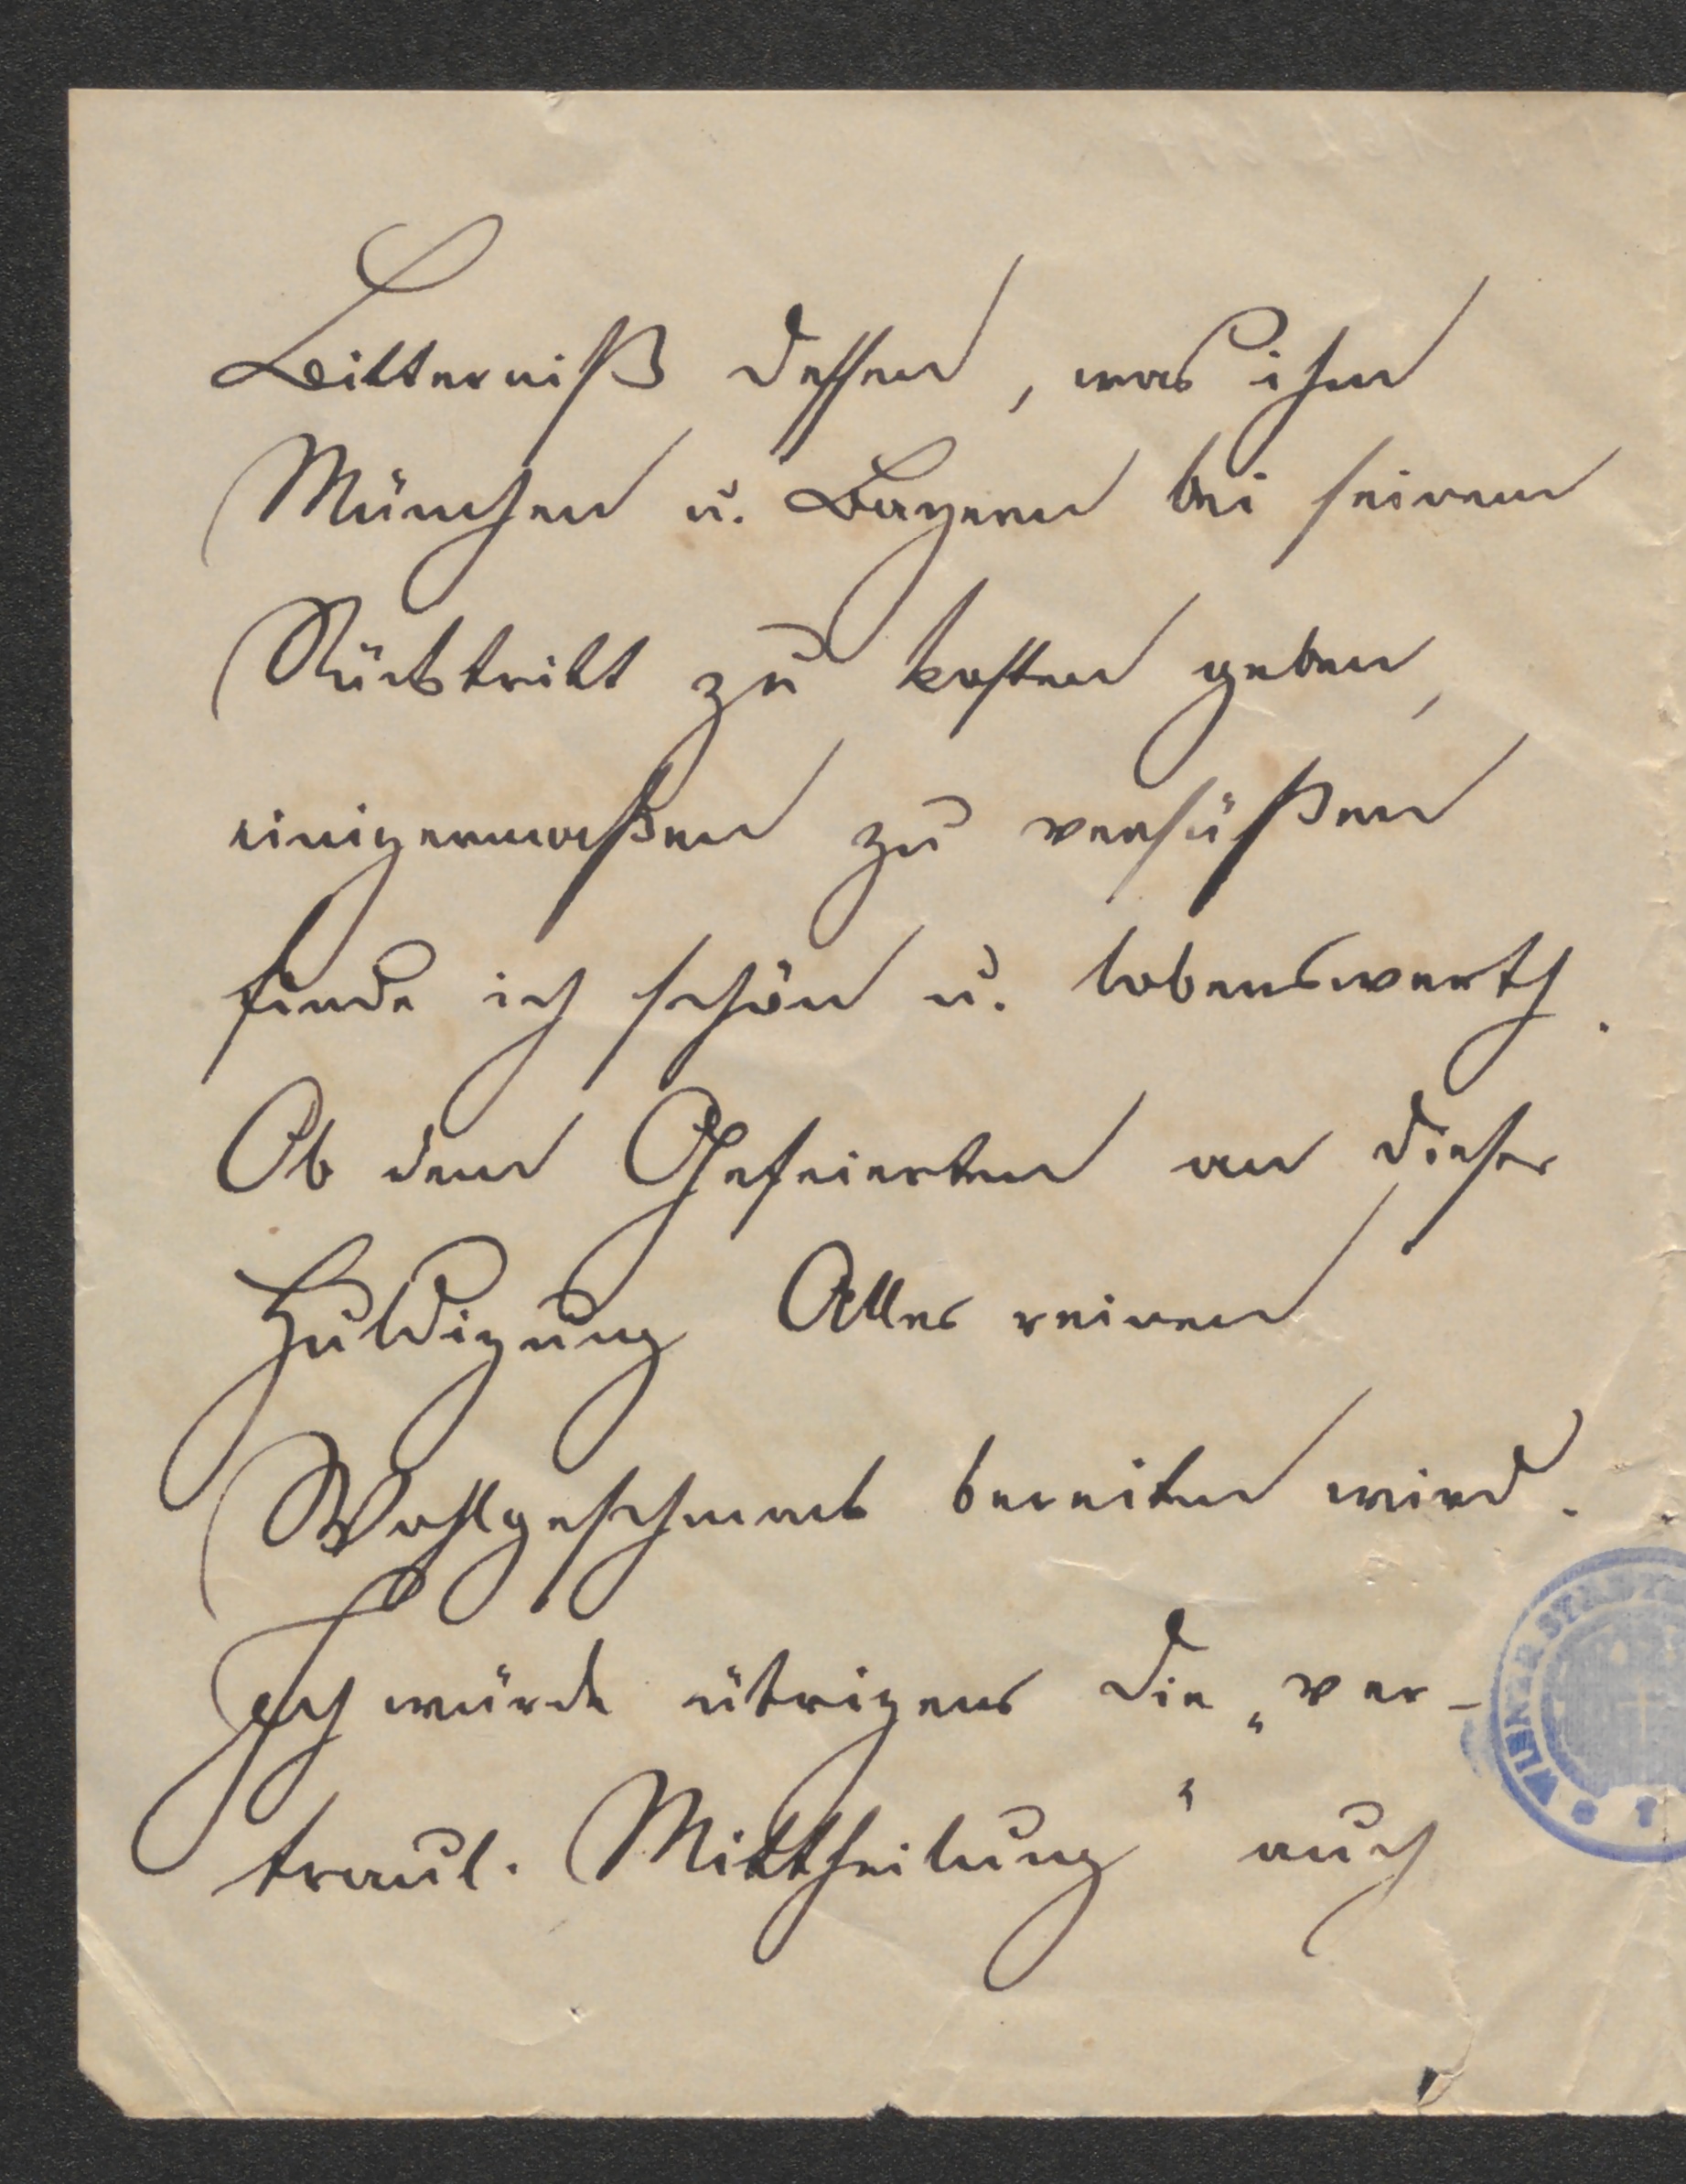 Bitterniß dessen, was ihm
München u. Bayern bei seinem
Rücktritt zu kosten geben,
einigermaßen zu versüßen
finde ich schön u. lobenswerth.
Ob dem Gefeierten an dieser
Huldigung Alles reinen
Wohlgeschmack bereiten wird.
Ich würde übrigens die „ver-
traul. Mittheilung“ auch
WIENER STADT